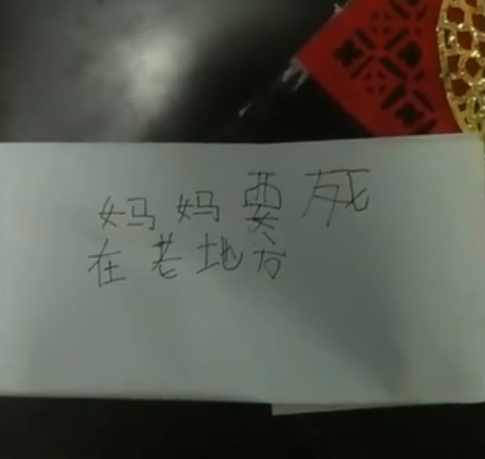 妈妈要死
在老地方